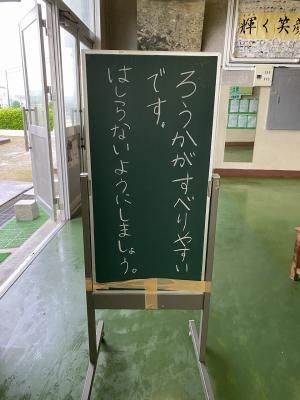 ろうかがすべりやすい
です。
はしらないようにしましょう。
輝く笑顔